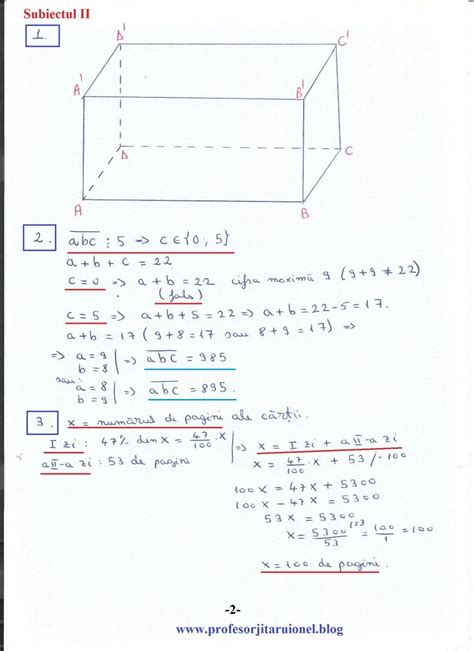 Subiectul II
1.
D' C'
A' B'
D C
A B
2. abc ⋮ 5 => c ∈ {0; 5}
a + b + c = 22
c = 0 => a + b = 22 cifra maximă 9 (9+9 ≠ 22)
(fals)
c = 5 => a + b + 5 = 22 => a + b = 22 - 5 = 17.
a + b = 17 (9 + 8 = 17 sau 8 + 9 = 17) =>
=> a = 9 | => abc = 985
b = 8 |
sau:
a = 8 | => abc = 895.
b = 9 |
3. x = numărul de pagini ale cărții.
I zi : 47% din x = 47/100 · x | => x = I zi + a II-a zi
a II-a zi : 53 de pagini | x = 47/100 · x + 53 / · 100
100x = 47x + 5300
100x - 47x = 5300
53x = 5300
x = 5300/53 (53 = 100/1 = 100
x = 100 de pagini.
-2-
www.profesorjitaruionel.blog